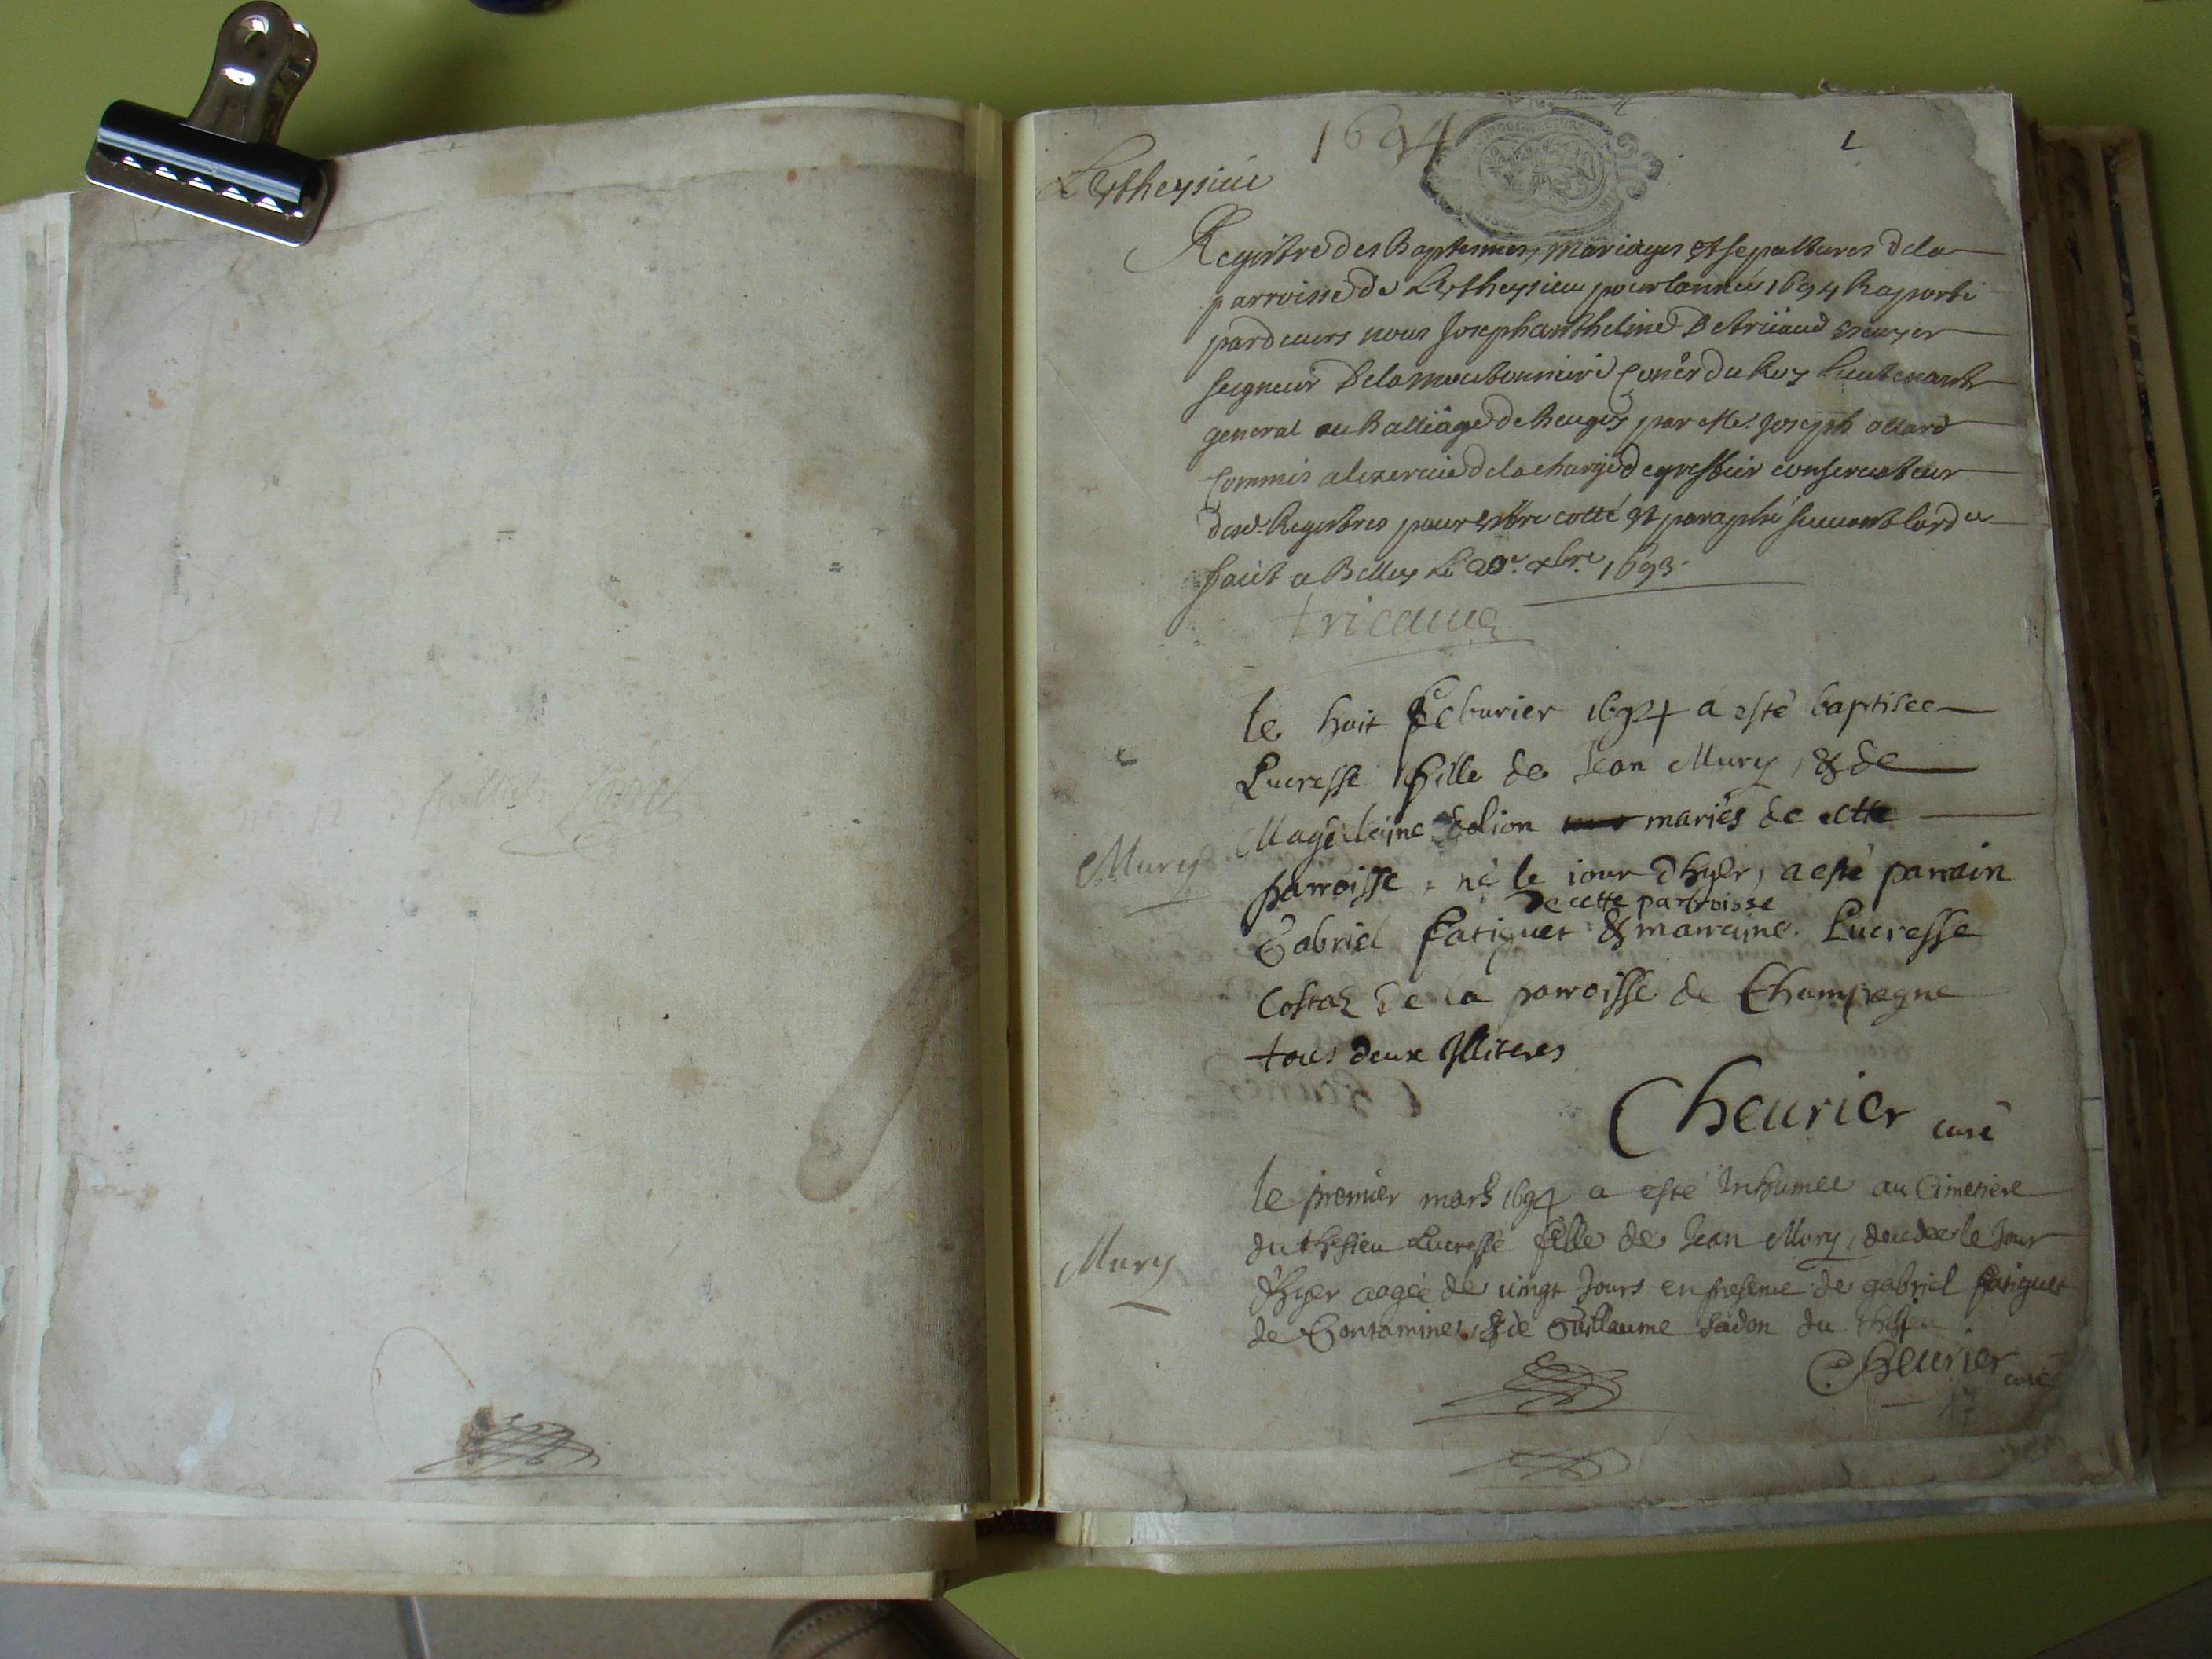 1694
L
Registre des Baptesmes, mariages et sepultures dela
parroisse de pour lannée 1694 Raporté
pardevers nous Joseph anthelme De escuyer
seigneur Dela Coner du Roy Lieutenant
general au Balliage de Beugey par Me. Joseph ollard
Commis alexercice dela charge de greffier conservateur
desd. Registres pour estre cotté et paraphé suivant lord.e
faict a Belley le 20e. xbre. 1693.
tricaud
le huit feburier 1694 a esté baptisee
Lucresse fille de Jean Mury, & de
Magdeleine mariés de cette
Mury
parroisse, né le iour dhyer, a esté parrain
de cette parroisse
Gabriel fatiguet & marraine. Lucresse
Costaz De la parroisse de Champagne
tous deux Illiteres
Cheurier curé
le premier mars 1694 a esté Inhumee au Cimetiere
Mury
du Lucresse fille de Jean Mury, decedee le Jour
d'hyer aagée de vingt Jours en presence de gabriel fatiguet
de Contamine, & de Guillaume du
Cheurier curé